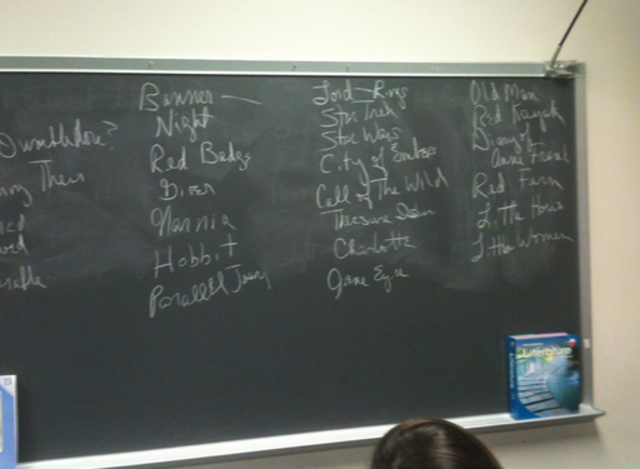 Dumbledore?
Banner
Night
Red Badge
Giver
Narnia
Hobbit
Parallel Journ
Lord Rings
Star Trek
Star Wars
City of Embers
Call of The Wild
Treasure
Charlotte
Jane Eyre
Old Man
Red Kayak
Diary of
Anne Frank
Red Fern
Little House
Little Women
Literature